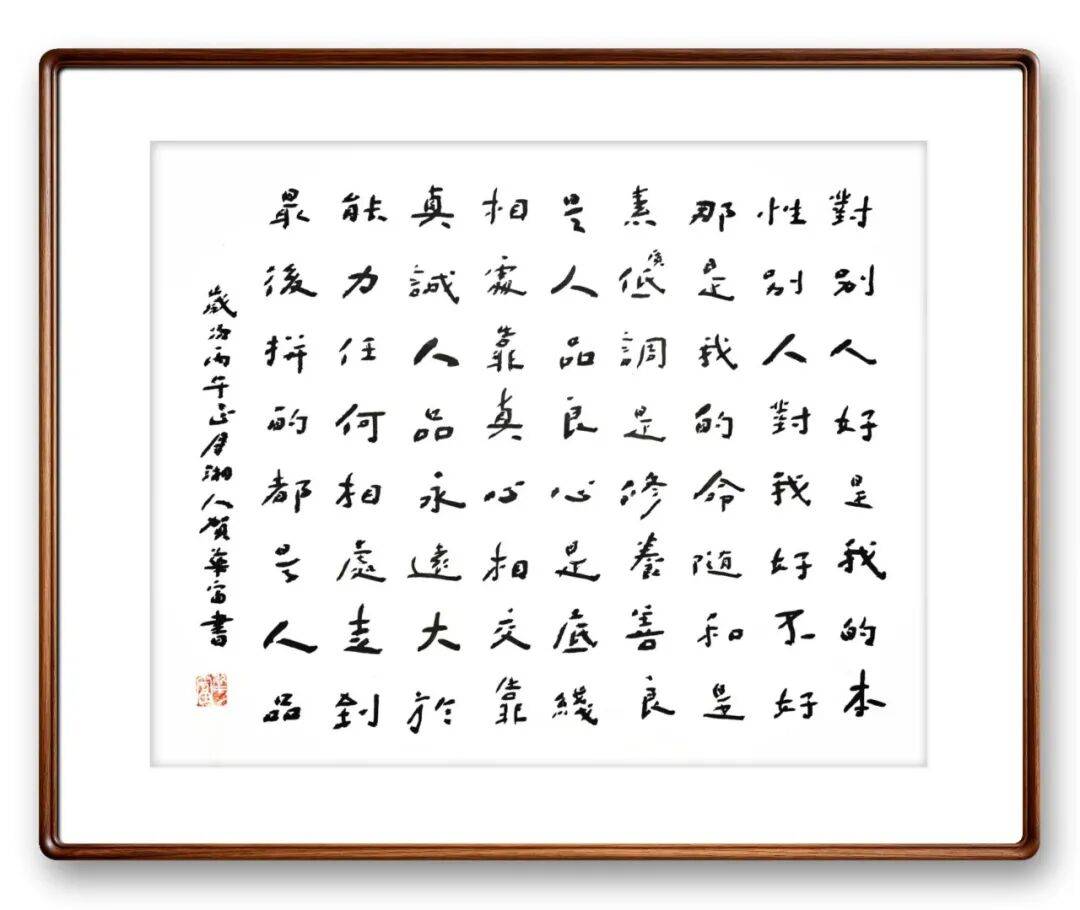 對別人好是我的本
性別人對我好不好
那是我的命隨和是
素質低調是修養善良
是人品良心是底綫
相處靠真心相交靠
真誠人品永遠大於
能力任何相處走到
最後拼的都是人品
歲次丙午正月湘人賀華富書